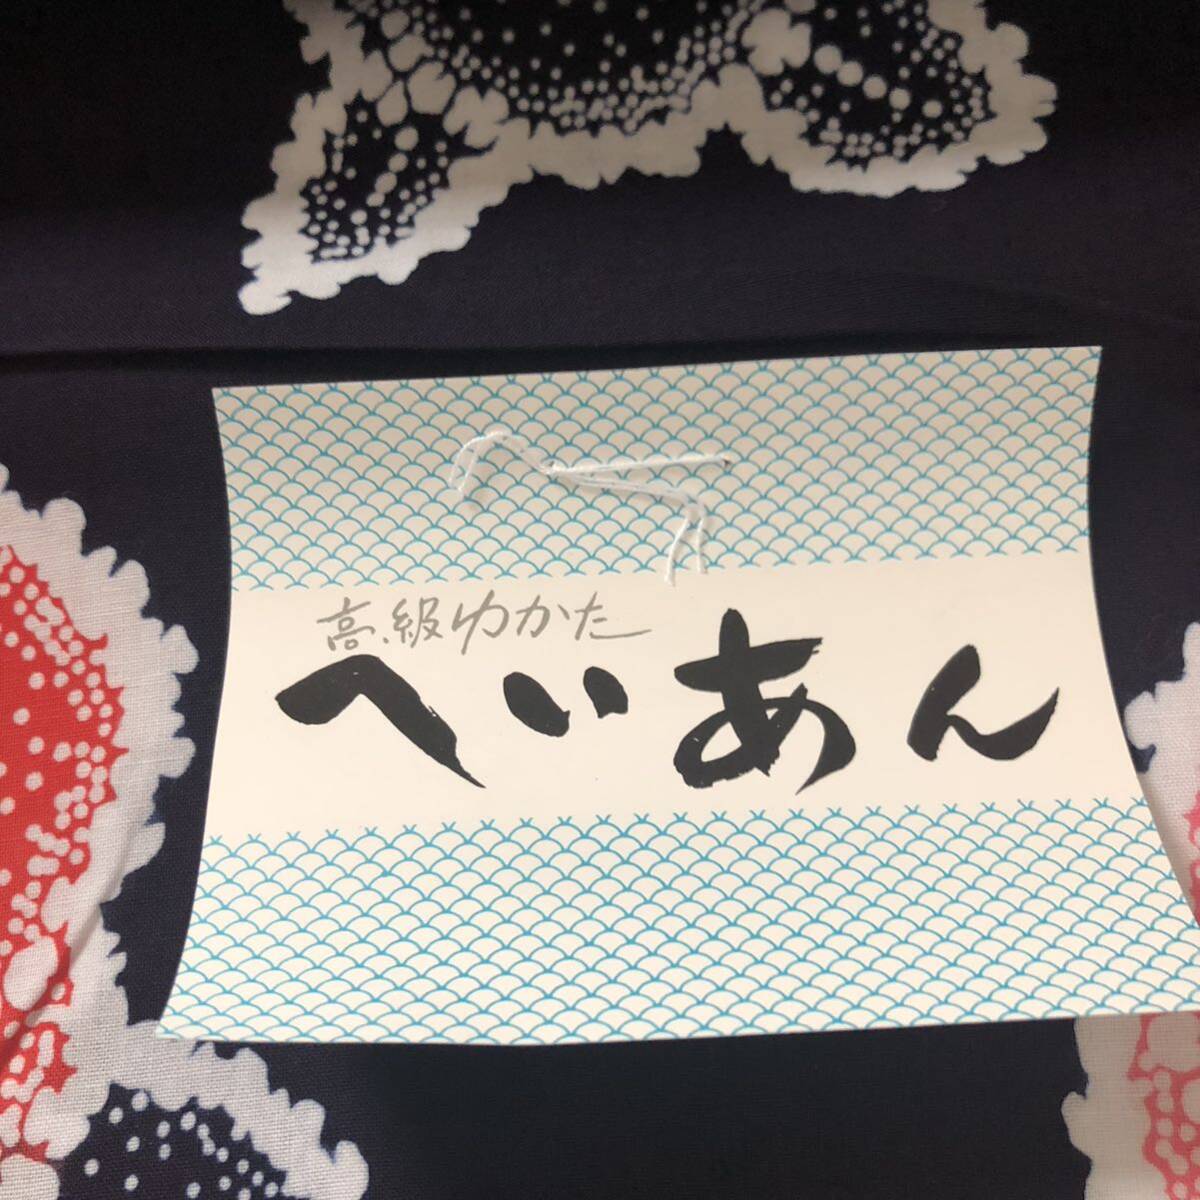 高級ゆかた
へいあん